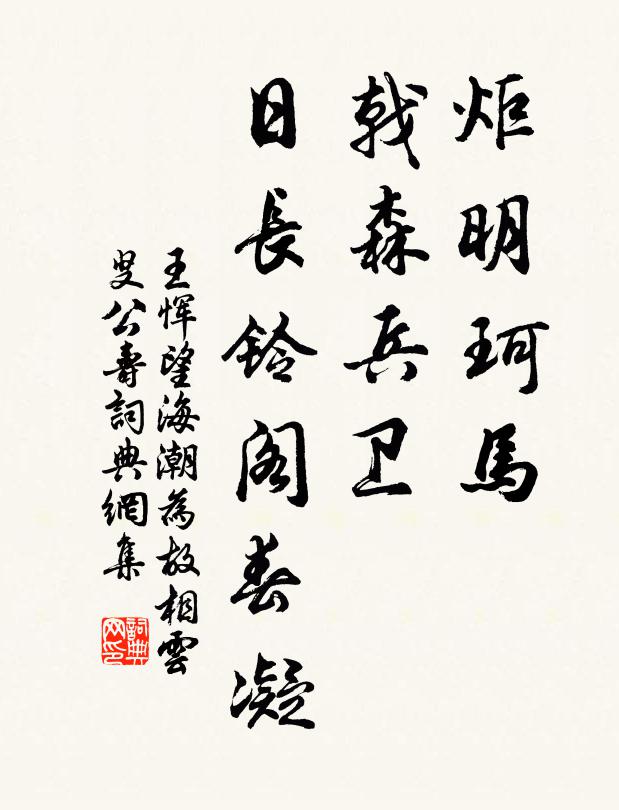 炬明珂馬
戟森兵卫
日長鈴阁春凝
王惲望海潮為故相雲
叟公壽詞典網集
詞典网印